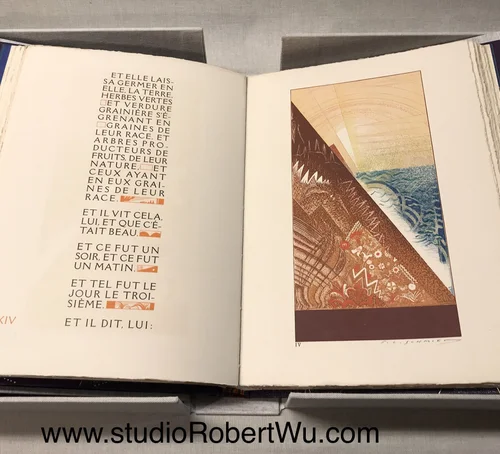 ET ELLE LAIS-
SA GERMER EN
ELLE, LA TERRE,
HERBES VERTES
ET VERDURE
GRAINIÈRE S'É-
GRENANT EN
GRAINES DE
LEUR RACE, ET
ARBRES PRO-
DUCTEURS DE
FRUITS, DE LEUR
NATURE, ET
CEUX AYANT
EN EUX GRAI-
NES DE LEUR
RACE.
ET IL VIT CELA,
LUI, ET QUE C'É-
TAIT BEAU.
ET CE FUT UN
SOIR, ET CE FUT
UN MATIN.
ET TEL FUT LE
JOUR LE TROI-
SIÈME.
XIV
ET IL DIT, LUI:
IV
www.studioRobertWu.com